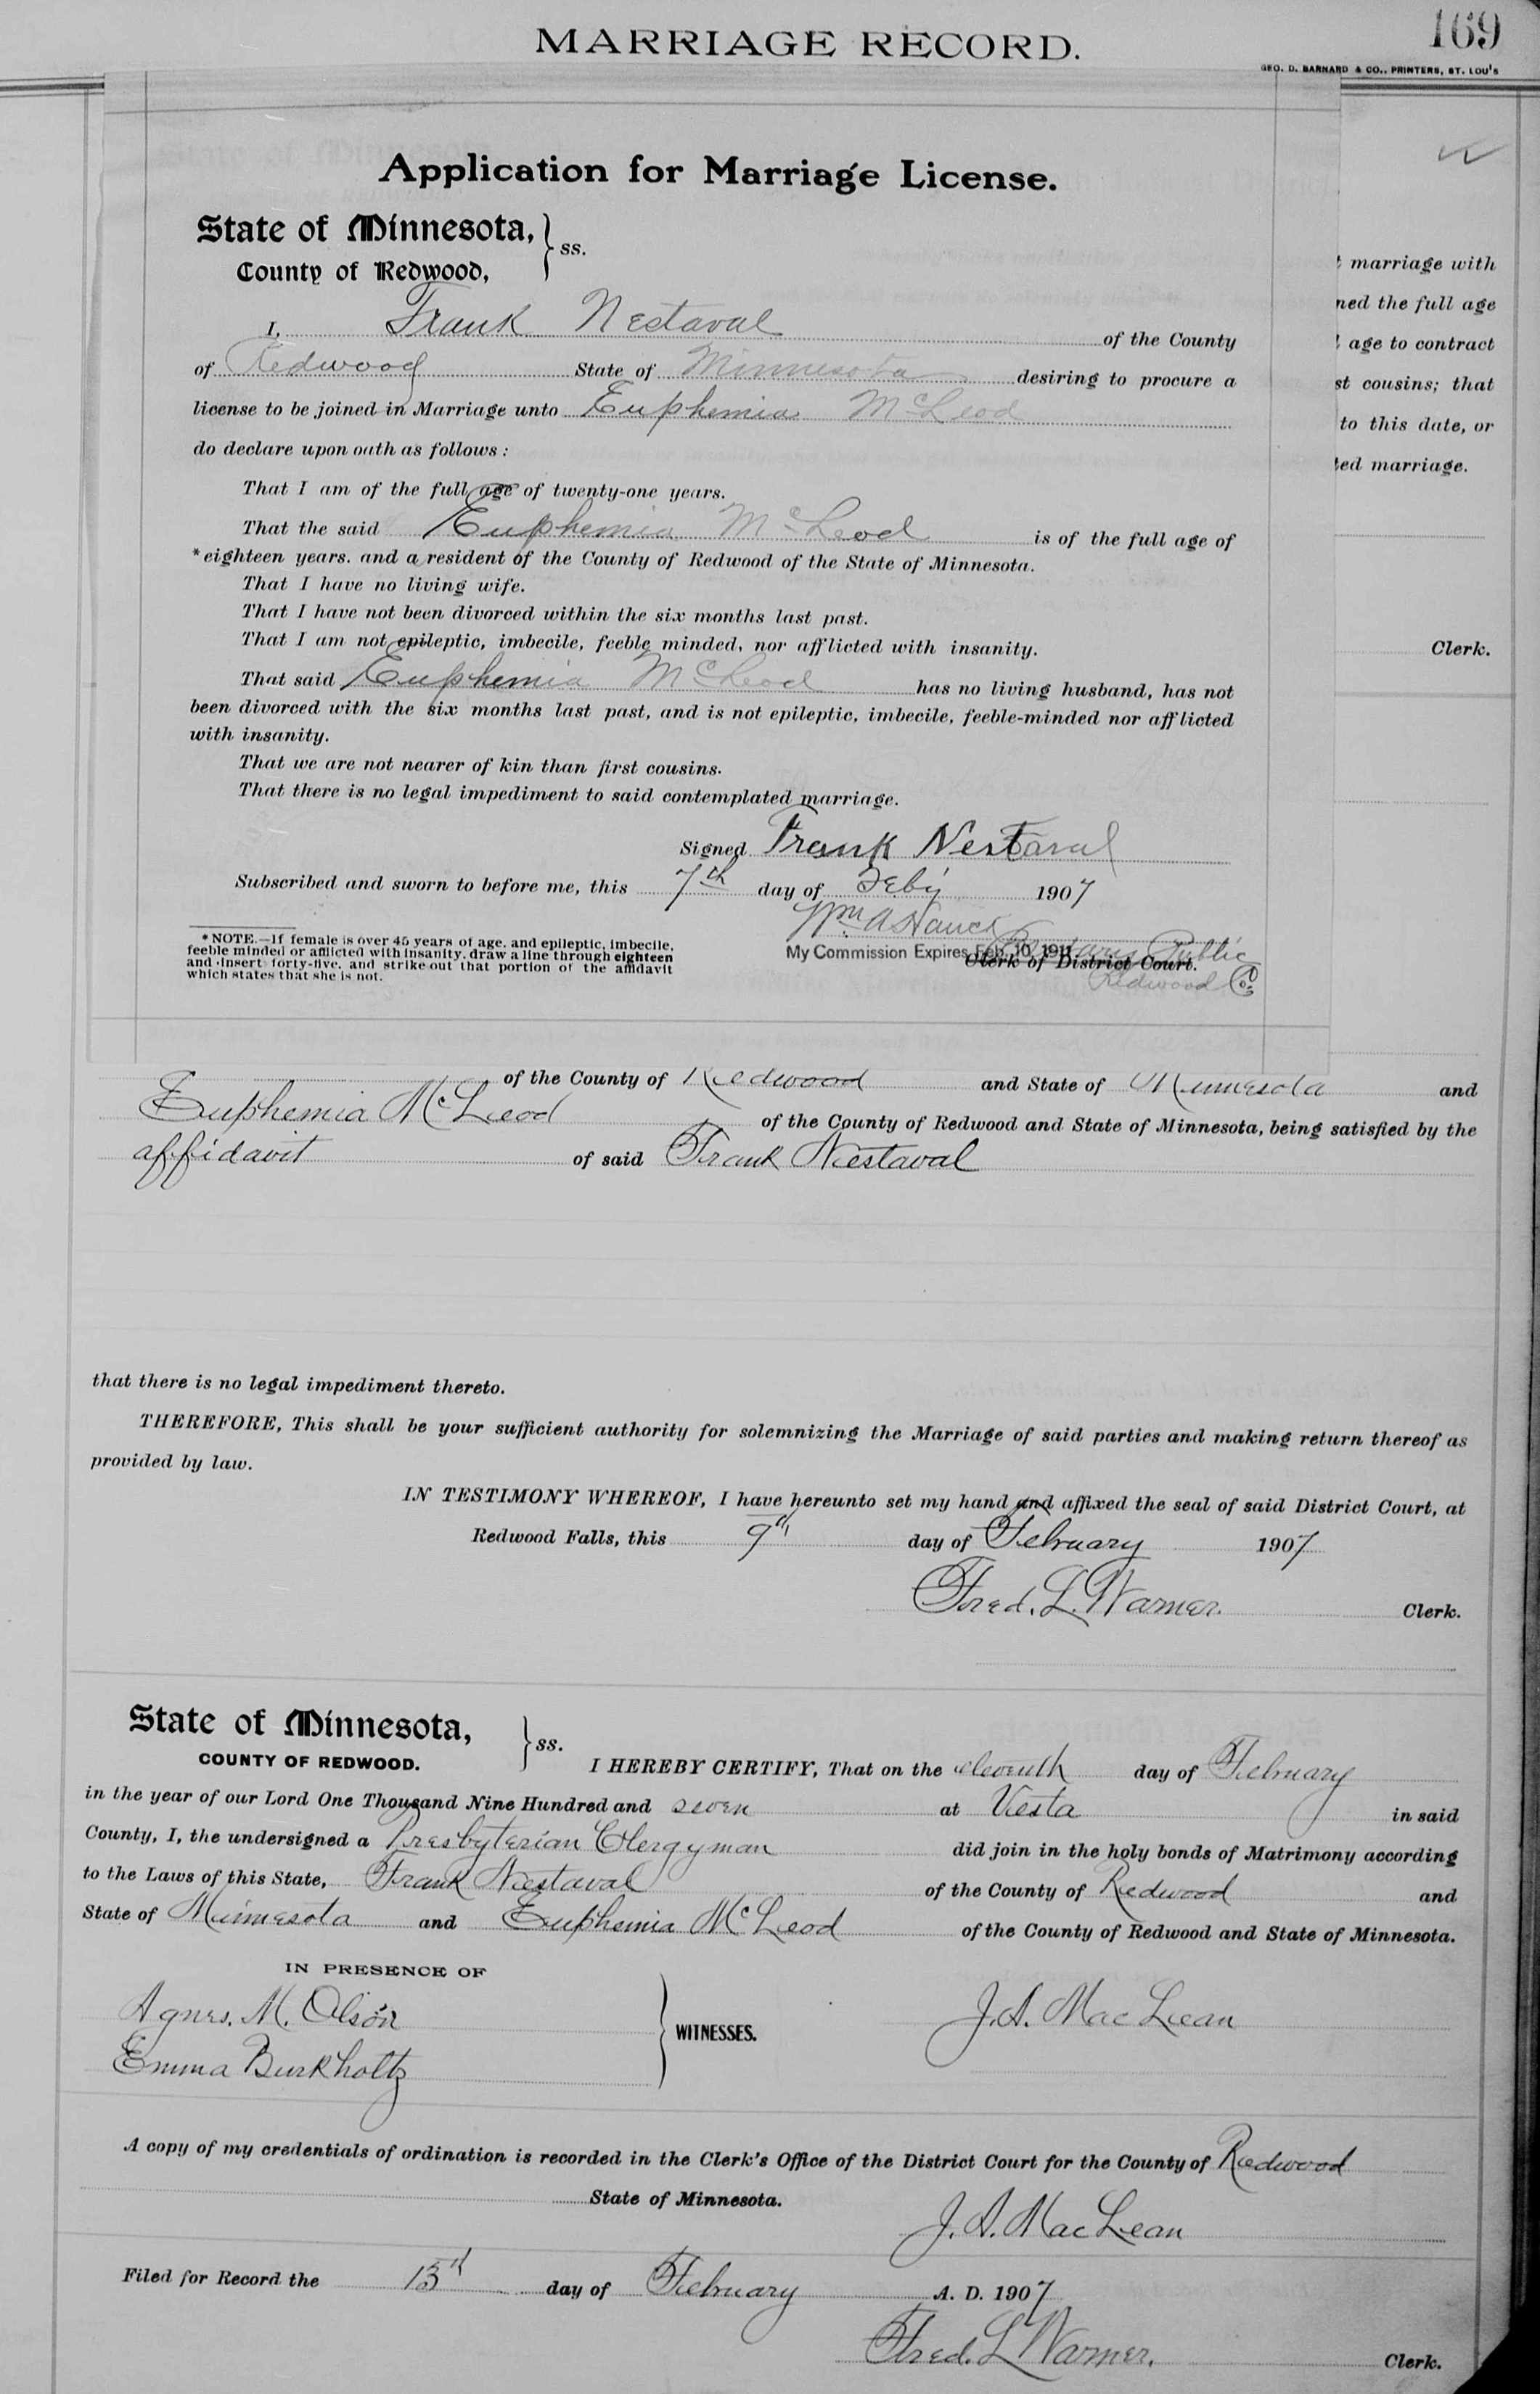 169
MARRIAGE RECORD.
GEO. D. BARNARD & CO., PRINTERS, ST. LOU'S
Application for Marriage License.
State of Minnesota,
County of Redwood, } ss.
I, Frank Nestaval of the County
of Redwood State of Minnesota desiring to procure a
license to be joined in Marriage unto Euphemia McLeod
do declare upon oath as follows:
That I am of the full age of twenty-one years.
That the said Euphemia McLeod is of the full age of
*eighteen years. and a resident of the County of Redwood of the State of Minnesota.
That I have no living wife.
That I have not been divorced within the six months last past.
That I am not epileptic, imbecile, feeble minded, nor afflicted with insanity.
That said Euphemia McLeod has no living husband, has not
been divorced with the six months last past, and is not epileptic, imbecile, feeble-minded nor afflicted
with insanity.
That we are not nearer of kin than first cousins.
That there is no legal impediment to said contemplated marriage.
Signed Frank Nestaval
Subscribed and sworn to before me, this 7th day of Feby 1907
Wm A Hauck
My Commission Expires Feb. 10, 1911
Notary Public
Clerk of District Court.
Redwood Co.
*NOTE.—If female is over 45 years of age, and epileptic, imbecile,
feeble minded or afflicted with insanity, draw a line through eighteen
and insert forty-five, and strike out that portion of the affidavit
which states that she is not.
marriage with
ned the full age
age to contract
st cousins; that
to this date, or
ted marriage.
Clerk.
of the County of Redwood and State of Minnesota and
Euphemia McLeod of the County of Redwood and State of Minnesota, being satisfied by the
affidavit of said Frank Nestaval
that there is no legal impediment thereto.
THEREFORE, This shall be your sufficient authority for solemnizing the Marriage of said parties and making return thereof as
provided by law.
IN TESTIMONY WHEREOF, I have hereunto set my hand and affixed the seal of said District Court, at
Redwood Falls, this 9th day of February 1907
Fred. L. Warner. Clerk.
State of Minnesota,
COUNTY OF REDWOOD. } ss.
I HEREBY CERTIFY, That on the eleventh day of February
in the year of our Lord One Thousand Nine Hundred and seven at Vesta in said
County, I, the undersigned a Presbyterian Clergyman did join in the holy bonds of Matrimony according
to the Laws of this State, Frank Nestaval of the County of Redwood and
State of Minnesota and Euphemia McLeod of the County of Redwood and State of Minnesota.
IN PRESENCE OF
Agnes. M. Olson
Emma Burkholtz
WITNESSES.
J. A. MacLean
A copy of my credentials of ordination is recorded in the Clerk's Office of the District Court for the County of Redwood
State of Minnesota.
J. A. MacLean
Filed for Record the 13th day of February A. D. 1907
Fred. L Warner. Clerk.